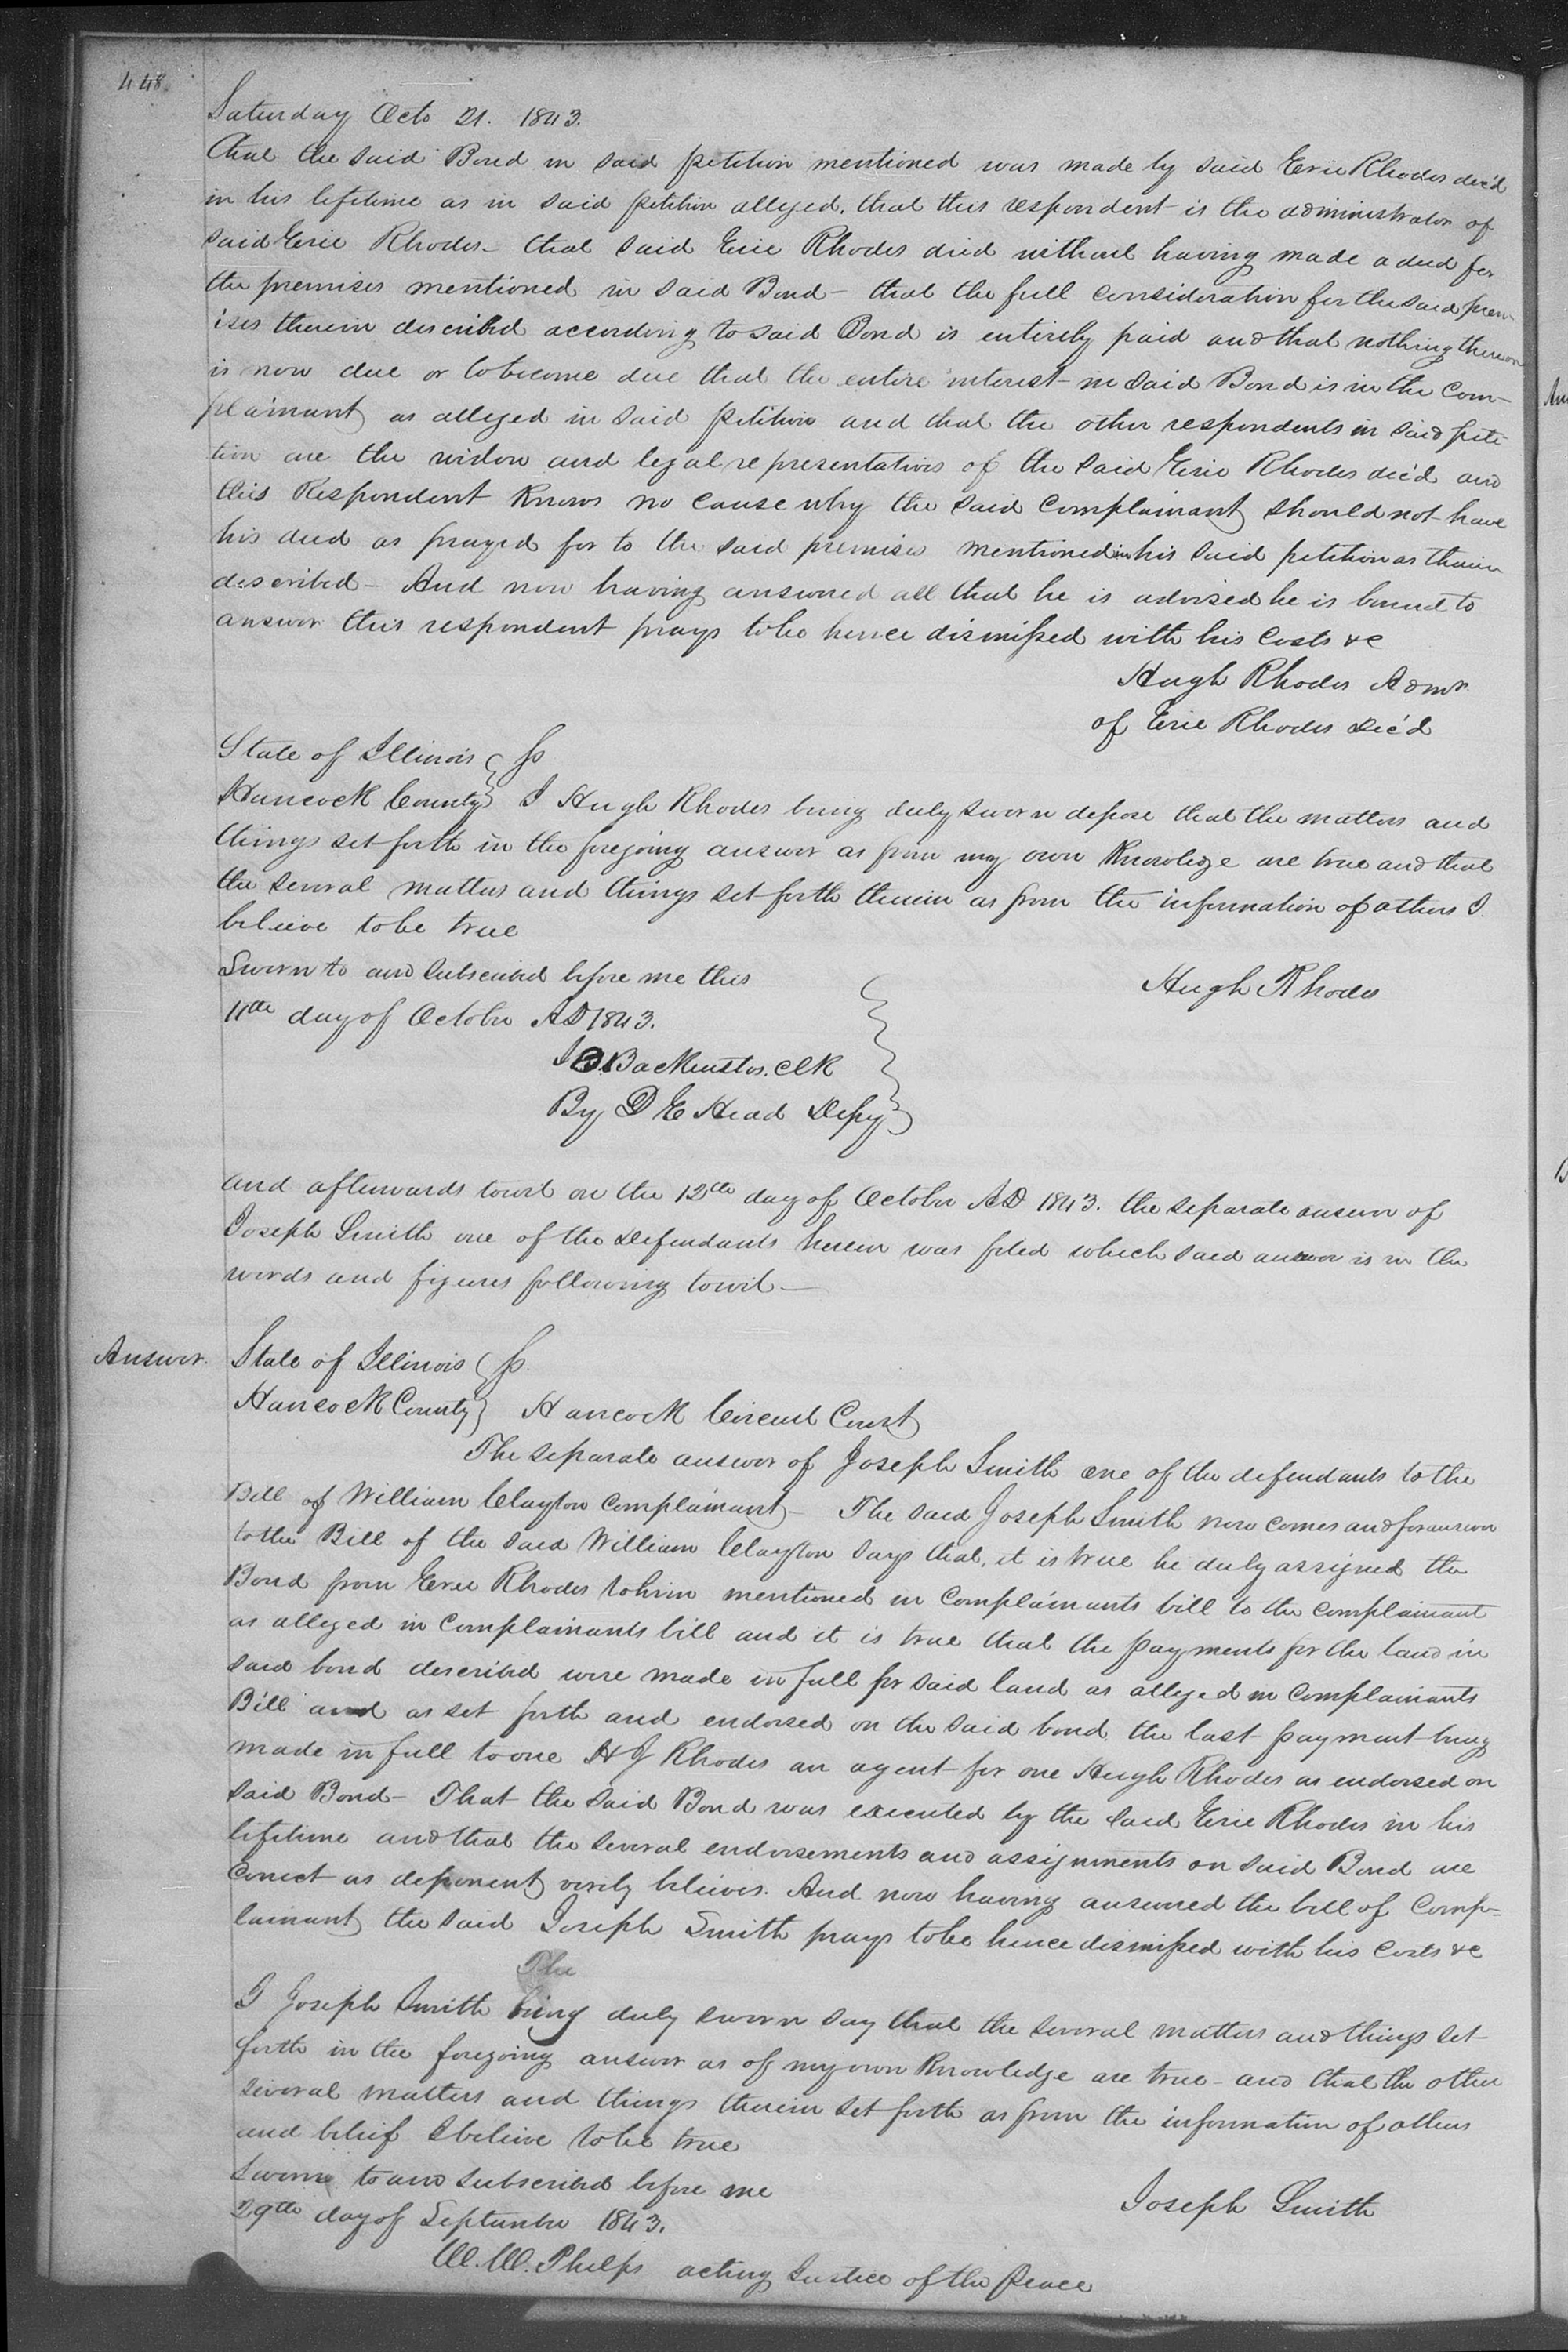 448
Saturday Octo 21. 1843.
That the said Bond in said petition mentioned was made by said Erie Rhodes dec'd
in his lifetime as in said petition alleged. that this respondent is the administrator of
said Erie Rhodes - that said Erie Rhodes died without having made a deed for
the premises mentioned in said Bond - that the full consideration for the said prem-
ises therein described according to said Bond is entirely paid and that nothing thereon
is now due or to become due that the entire interest in said Bond is in the Com-
plainant as alleged in said petition and that the other respondents in said peti-
tion are the widow and legal representatives of the said Erie Rhodes dec'd and
this Respondent Knows no cause why the said Complainant should not have
his deed as prayed for to the said premises mentioned in his said petition as therein
described - And now having answered all that he is advised he is bound to
answer this respondent prays to be hence dismissed with his Costs &c
Hugh Rhodes Admr
of Erie Rhodes Dec'd
State of Illinois } ss
Hancock County } I Hugh Rhodes being duly sworn depose that the matters and
things set forth in the foregoing answer as from my own Knowledge are true and that
the several matters and things set forth therein as from the information of others I
believe to be true
Sworn to and subscribed before me this
Hugh Rhodes
11th day of October AD 1843.
J B Backenstos. Clk
By D E Head Depy
And afterwards towit on the 12th day of October AD 1843. the separate answer of
Joseph Smith one of the Defendants herein was filed which said answer is in the
words and figures following towit -
Answer. State of Illinois } ss.
Hancock County } Hancock Circuit Court
The separate answer of Joseph Smith one of the defendants to the
Bill of William Clayton Complainant - The said Joseph Smith now comes and for answer
to the Bill of the said William Clayton says that, it is true he duly assigned the
Bond from Erie Rhodes to him mentioned in Complainants bill to the Complainant
as alleged in Complainants bill and it is true that the payments for the land in
said bond described were made in full for said land as alleged in Complainants
Bill and as set forth and endorsed on the said bond, the last payment being
made in full to one H J Rhodes an agent for one Hugh Rhodes as endorsed on
said Bond - That the said Bond was executed by the said Erie Rhodes in his
lifetime and that the several endorsements and assignments on said Bond are
Correct as deponent verily believes. And now having answered the bill of Comp-
lainant the said Joseph Smith prays to be hence dismissed with his Costs &c
The
I Joseph Smith being duly sworn say that the several matters and things set
forth in the foregoing answer as of my own Knowledge are true - and that the other
several matters and things therein set forth as from the information of others
and belief I believe to be true
Sworn to and subscribed before me
Joseph Smith
29th day of September 1843.
W. W. Phelps acting Justice of the Peace